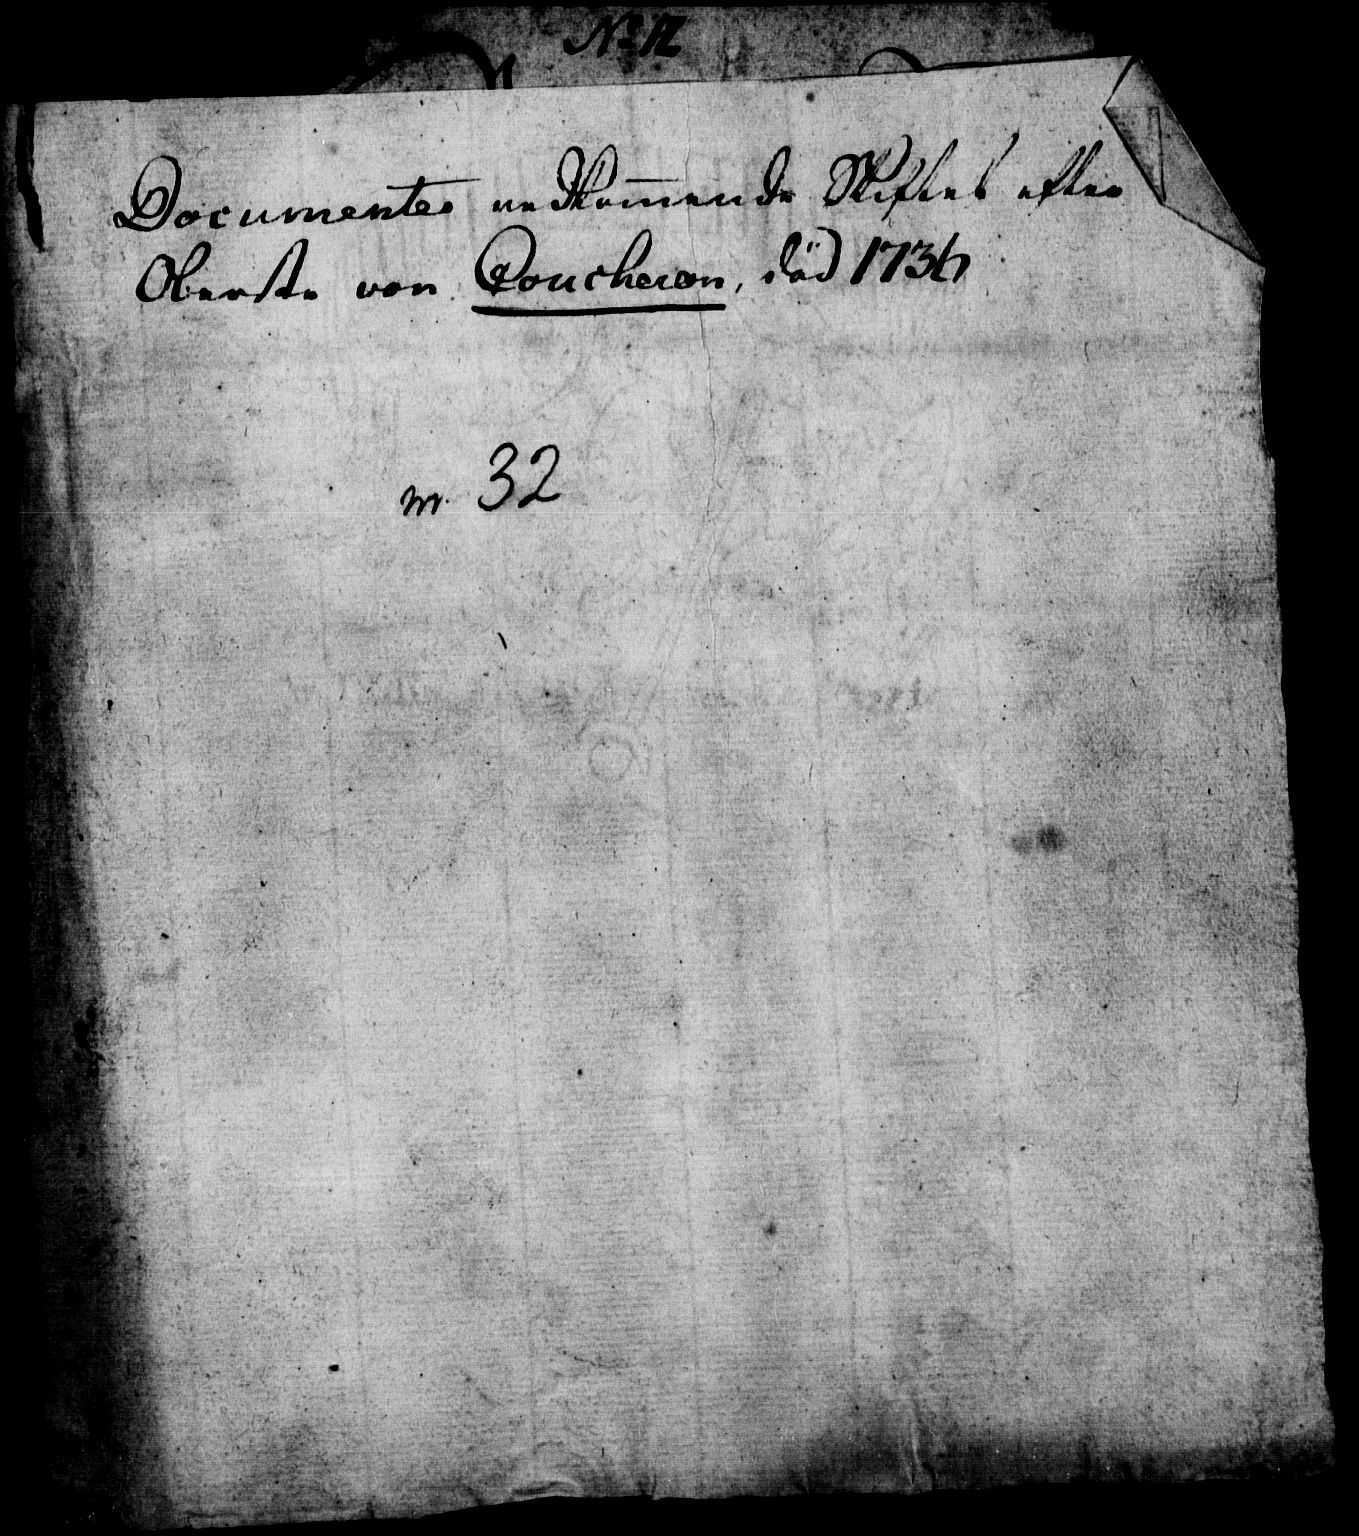 No 12
Documenter vedkom̄ende Skiftet efter
Oberste von Coucheron, död 1736
nr. 32